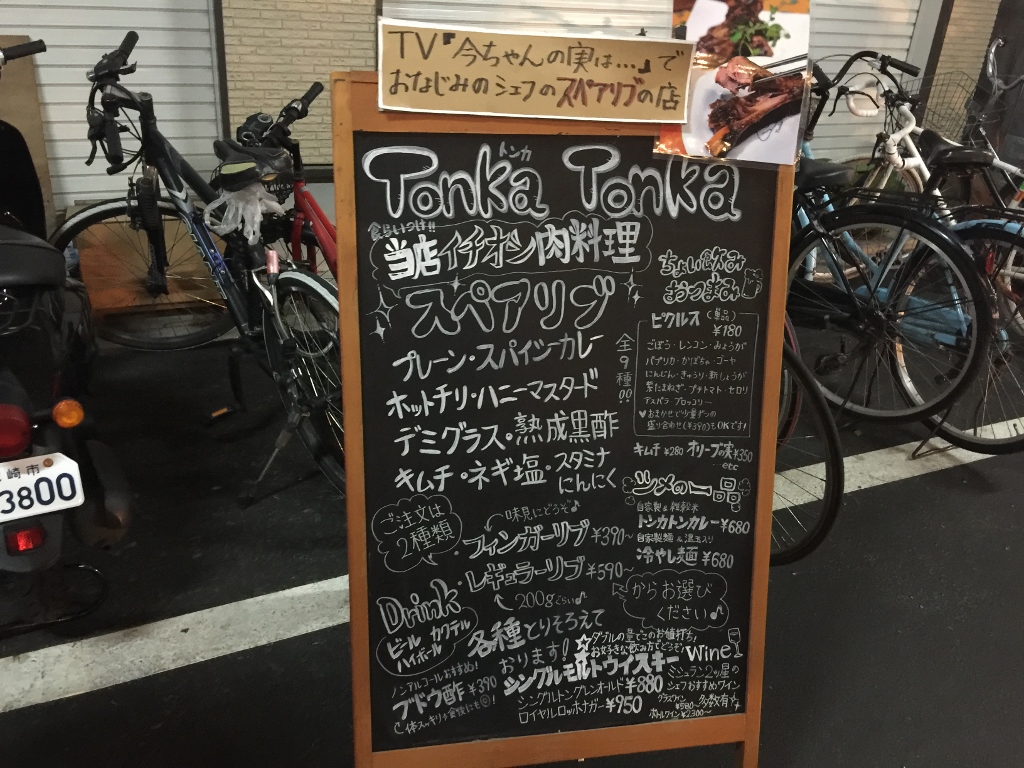 TV「今ちゃんの実は…」で
おなじみのシェフのスペアリブの店
トンカ
Tonka Tonka
当店イチオシ肉料理
スペアリブ
プレーン・スパイシーカレー
ホットチリ・ハニーマスタード
デミグラス・熟成黒酢
キムチ・ネギ塩・スタミナにんにく
全9種
ご注文は
2種類
味見にどうぞ♪
フィンガーリブ ¥390~
レギュラーリブ ¥590~
200gぐらい♪
からお選び
ください♪
ちょい飲み
おつまみ
ピクルス(単品)
¥180
ごぼう・レンコン・みょうが
パプリカ・かぼちゃ・ゴーヤ
にんじん・きゅうり・新しょうが
紫たまねぎ・プチトマト・セロリ
アスパラ・ブロッコリー
♥おまかせで少量ずつの
盛り合わせ(¥390)もOKです!
キムチ ¥280 オリーブの実 ¥350
…etc
シメの一品
自家製&雑穀米
トンカトンカレー ¥680
自家製麺&温玉入り
冷やし麺 ¥680
Drink
ビール カクテル
ハイボール
各種とりそろえて
おります!
ノンアルコールおすすめ!
ブドウ酢 ¥390
ダブルの量でこのお値打ち♪
お好きな飲み方でどうぞ♪
シングルモルトウイスキー
シングルトングレンオールド ¥880
ロイヤルロッホナガー ¥950
Wine
ミシュラン2ッ星の
シェフおすすめワイン
多数有ります
グラスワイン ¥580~
ボトルワイン ¥2300~
崎市
3800